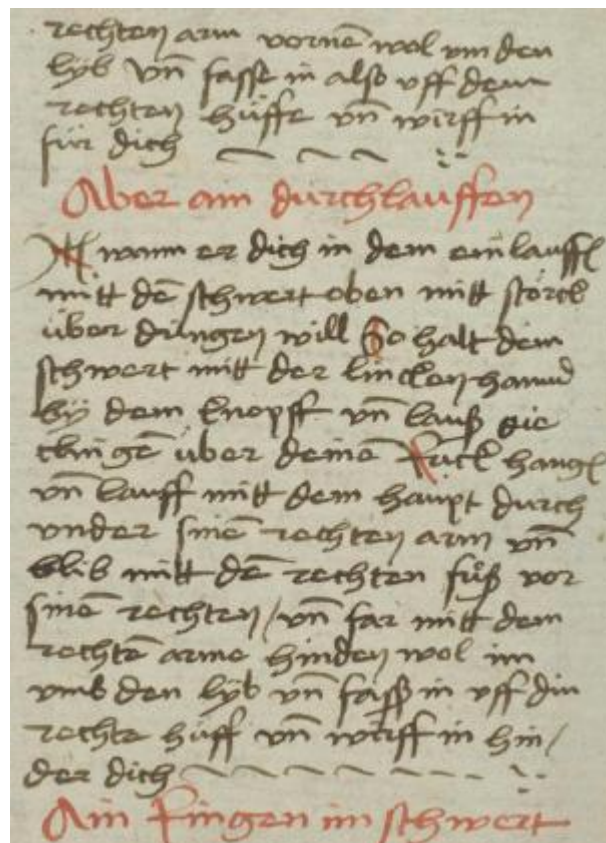 rechten arm vorne̅ wol vm den
lÿb vn̅ fasse in also vff dein
rechten hüffe vn̅ wirff in
für dich
Aber ain durchlauffen
Itm̅ wann er dich in dem einlauff
mitt de̅ schwert oben mitt störck
über dringen will So halt dein
schwert mitt der lincken hannd
bÿ dem knopff vn̅ lauß die
clinge̅ über deine̅ Ruck hang
vn̅ lauff mitt dem haupt durch
vnder sine̅ rechten arm vn̅
blib mitt de̅ rechten fůß vor
sine̅ rechten / vn̅ far mitt dem
rechte̅ arme hinden wol im
vmb den lÿb vn̅ fasß in vff din
rechte hüff vn̅ wirff in hin /
der dich
Ain Ringen im schwert